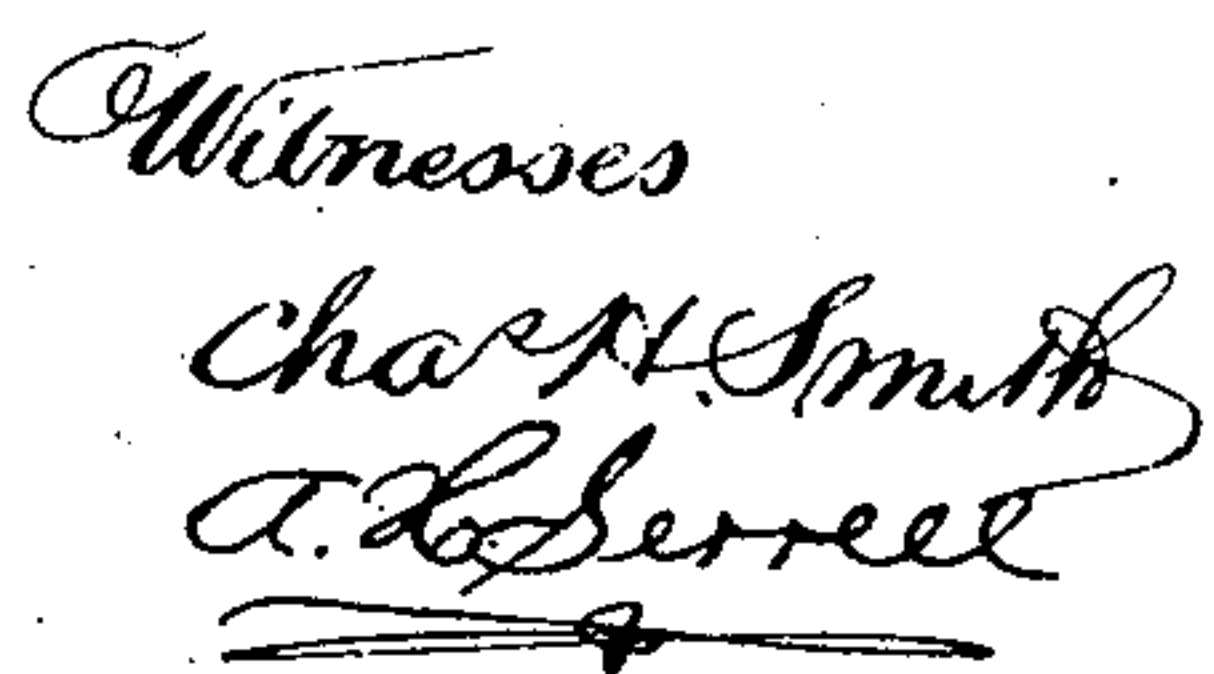 Witnesses
Chas H. Smith
A. H. Serrell